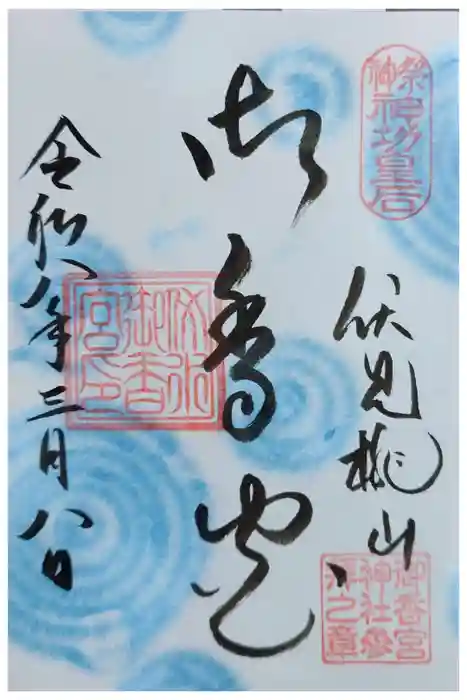 祭神
神功皇后
伏見桃山
御香宮
神社参
拝之章
御香宮
伏水
御香
宮印
令和八年三月八日